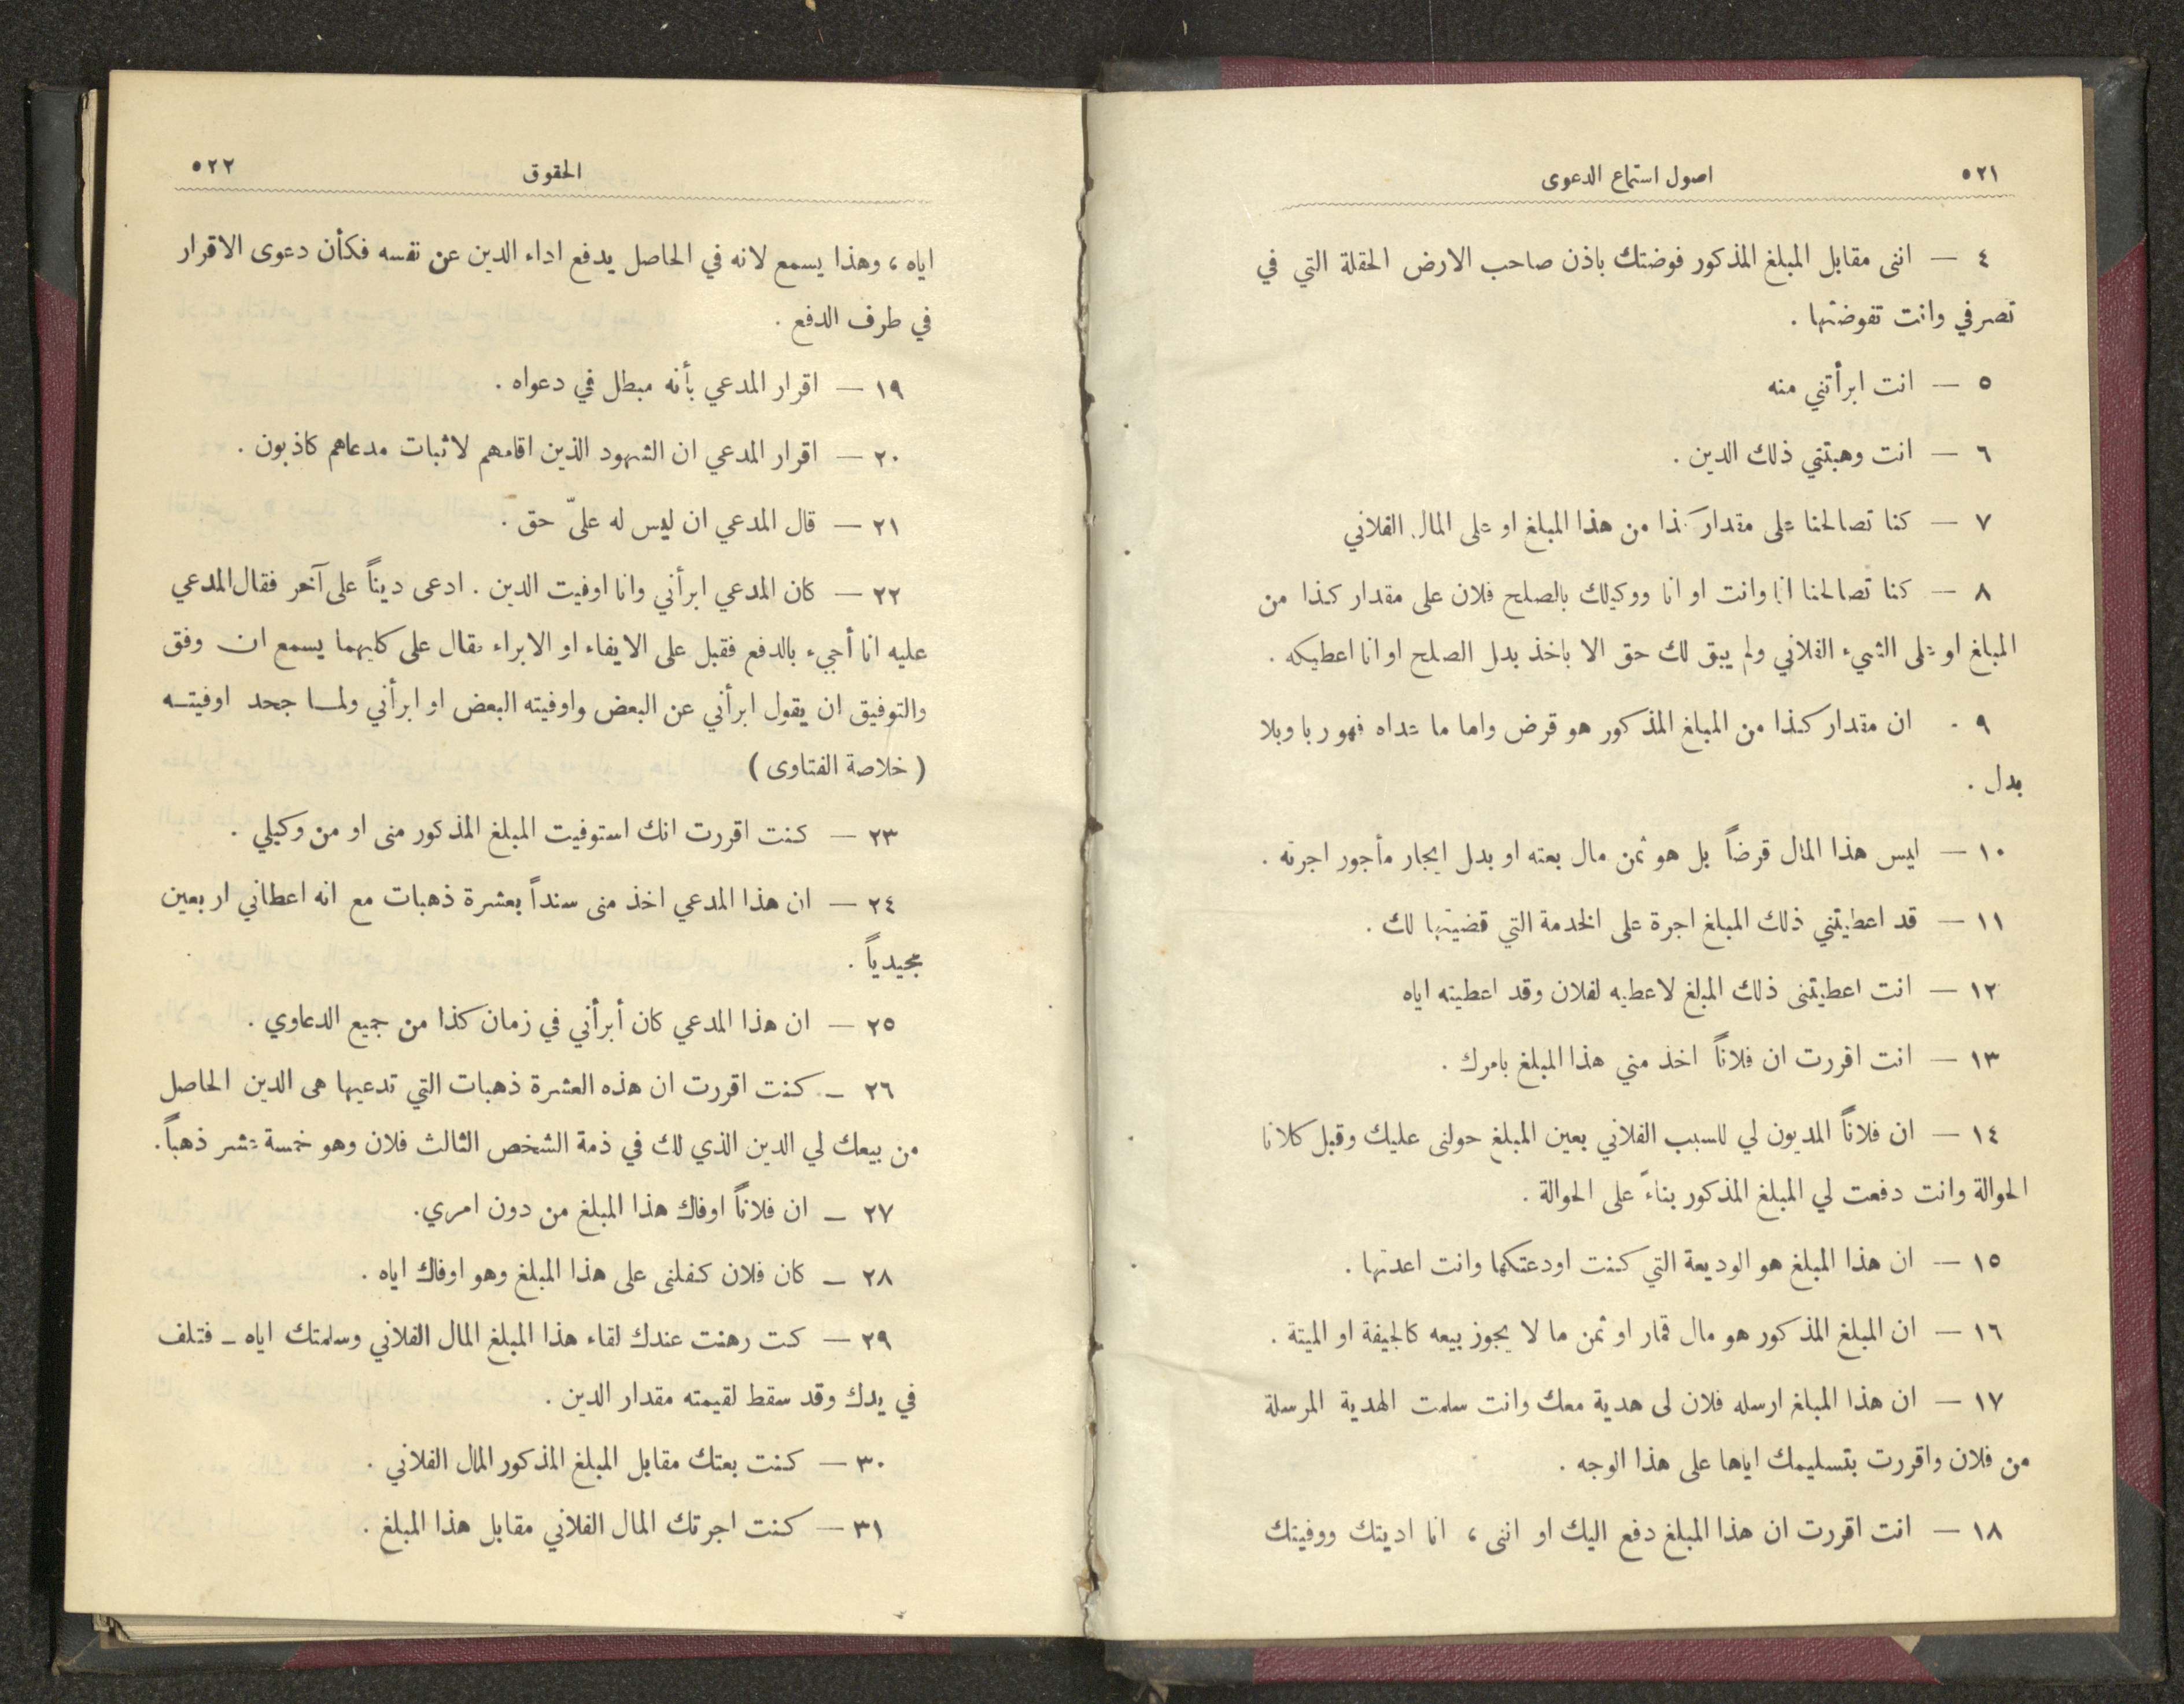 ٥٢١ اصول استماع الدعوى
٤ — اننى مقابل المبلغ المذكور فوضتك باذن صاحب الارض الحقلة التي في
تصرفي وانت تفوضتها .
٥ — انت ابرأتني منه
٦ — انت وهبتني ذلك الدين .
٧ — كنا تصالحنا على مقدار كذا من هذا المبلغ او على المال الفلاني
٨ — كنا تصالحنا انا وانت او انا ووكيلك بالصلح فلان على مقدار كذا من
المبلغ او على الشيء الفلاني ولم يبق لك حق الا باخذ بدل الصلح او انا اعطيكه .
٩ . ان مقدار كذا من المبلغ المذكور هو قرض واما ما عداه فهو ربا وبلا
بدل .
١٠ — ليس هذا المال قرضاً بل هو ثمن مال بعته او بدل ايجار مأجور اجرته .
١١ — قد اعطيتني ذلك المبلغ اجرة على الخدمة التي قضيتها لك .
١٢ — انت اعطيتنى ذلك المبلغ لاعطيه لفلان وقد اعطيته اياه
١٣ — انت اقررت ان فلاناً اخذ مني هذا المبلغ بامرك .
١٤ — ان فلاناً المديون لي للسبب الفلاني بعين المبلغ حولنى عليك وقبل كلانا
الحوالة وانت دفعت لي المبلغ المذكور بناءً على الحوالة .
١٥ — ان هذا المبلغ هو الوديعة التي كنت اودعتكها وانت اعدتها .
١٦ — ان المبلغ المذكور هو مال قمار او ثمن ما لا يجوز بيعه كالجيفة او الميتة .
١٧ — ان هذا المبلغ ارسله فلان لى هدية معك وانت سلمت الهدية المرسلة
من فلان واقررت بتسليمك اياها على هذا الوجه .
١٨ — انت اقررت ان هذا المبلغ دفع اليك او اننى ، انا اديتك ووفيتك
الحقوق ٥٢٢
اياه ، وهذا يسمع لانه في الحاصل يدفع اداء الدين عن نفسه فكأن دعوى الاقرار
في طرف الدفع .
١٩ — اقرار المدعي بأنه مبطل في دعواه .
٢٠ — اقرار المدعي ان الشهود الذين اقامهم لاثبات مدعاهم كاذبون .
٢١ — قال المدعي ان ليس له عليّ حق .
٢٢ — كان المدعي ابرأني وانا اوفيت الدين . ادعى ديناً على آخر فقال المدعي
عليه انا أجيء بالدفع فقبل على الايفاء او الابراء فقال على كليهما يسمع ان وفق
والتوفيق ان يقول ابرأني عن البعض واوفيته البعض او ابرأني ولما جحد اوفيته
( خلاصة الفتاوى )
٢٣ — كنت اقررت انك استوفيت المبلغ المذكور منى او من وكيلي .
٢٤ — ان هذا المدعي اخذ منى سنداً بعشرة ذهبات مع انه اعطاني اربعين
مجيدياً .
٢٥ — ان هذا المدعي كان أبرأني في زمان كذا من جميع الدعاوي .
٢٦ — كنت اقررت ان هذه العشرة ذهبات التي تدعيها هى الدين الحاصل
من بيعك لي الدين الذي لك في ذمة الشخص الثالث فلان وهو خمسة عشر ذهباً .
٢٧ — ان فلاناً اوفاك هذا المبلغ من دون امري .
٢٨ — كان فلان كفلنى على هذا المبلغ وهو اوفاك اياه .
٢٩ — كت رهنت عندك لقاء هذا المبلغ المال الفلاني وسلمتك اياه — فتلف
في يدك وقد سقط لقيمته مقدار الدين .
٣٠ — كنت بعتك مقابل المبلغ المذكور المال الفلاني .
٣١ — كنت اجرتك المال الفلاني مقابل هذا المبلغ .